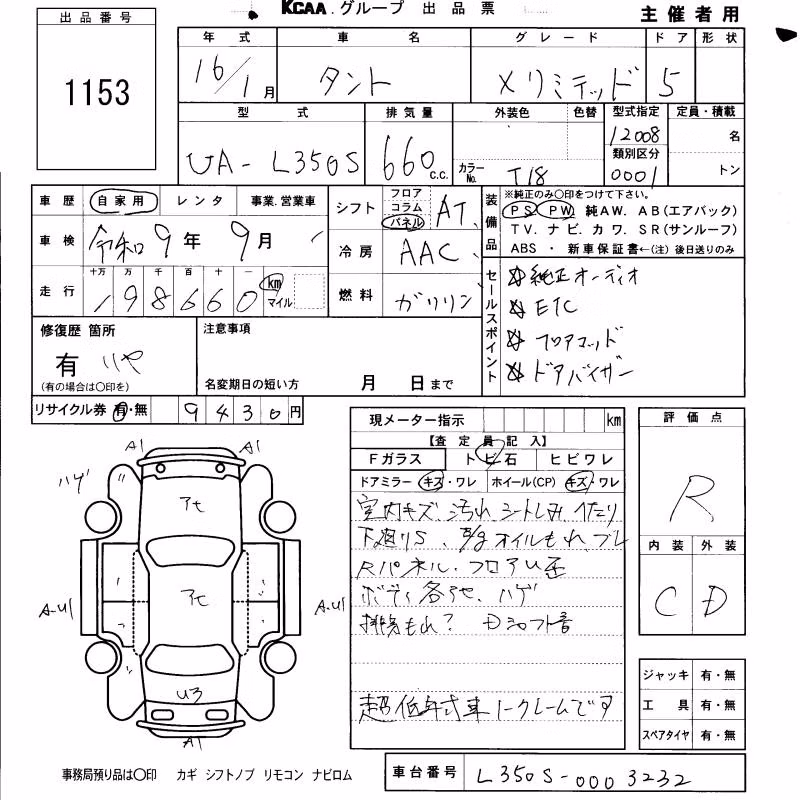 KCAA.グループ 出品票 主催者用
出品番号 1153
年式 車名 グレード ドア 形状
16/1月 タント Xリミテッド 5
型式 排気量 外装色 色替 型式指定 定員・積載
UA-L350S 660 c.c. カラーNo. T18 12008 名
類別区分 0001 トン
車歴 自家用 レンタ 事業.営業車
車検 令和9年9月
走行 十万 万 千 百 十 一
198660 km マイル
シフト フロア コラム パネル AT
冷房 AAC
燃料 ガソリン
装備品 ※純正のみ○印をつけて下さい。
PS PW 純AW. AB(エアバック)
TV. ナビ. カワ. SR(サンルーフ)
ABS ・ 新車保証書←(注) 後日送りのみ
セールスポイント
純正オーディオ
ETC
フロアマット
ドアバイザー
修復歴 箇所
有 リヤ
(有の場合は○印を)
注意事項
名変期日の短い方 月 日まで
リサイクル券 有・無 9430円
現メーター指示 km
【査定員記入】
Fガラス トビ石 ヒビワレ
ドアミラー キズ・ワレ ホイール(CP) キズ・ワレ
室内キズ 汚れ シートしみ へたり
下廻りS オイルもれ
Rパネル・フロアU歪
ボディ各アセ、ハゲ
排気もれ? Dシャフト音
超低年式車ノークレームです
評価点
R
内装 外装
C D
ジャッキ 有・無
工具 有・無
スペアタイヤ 有・無
A1 A1
ハゲ
アセ
アセ
A-U1 A-U1
U3
A1
事務局預り品は○印 カギ シフトノブ リモコン ナビロム
車台番号 L350S-0003232